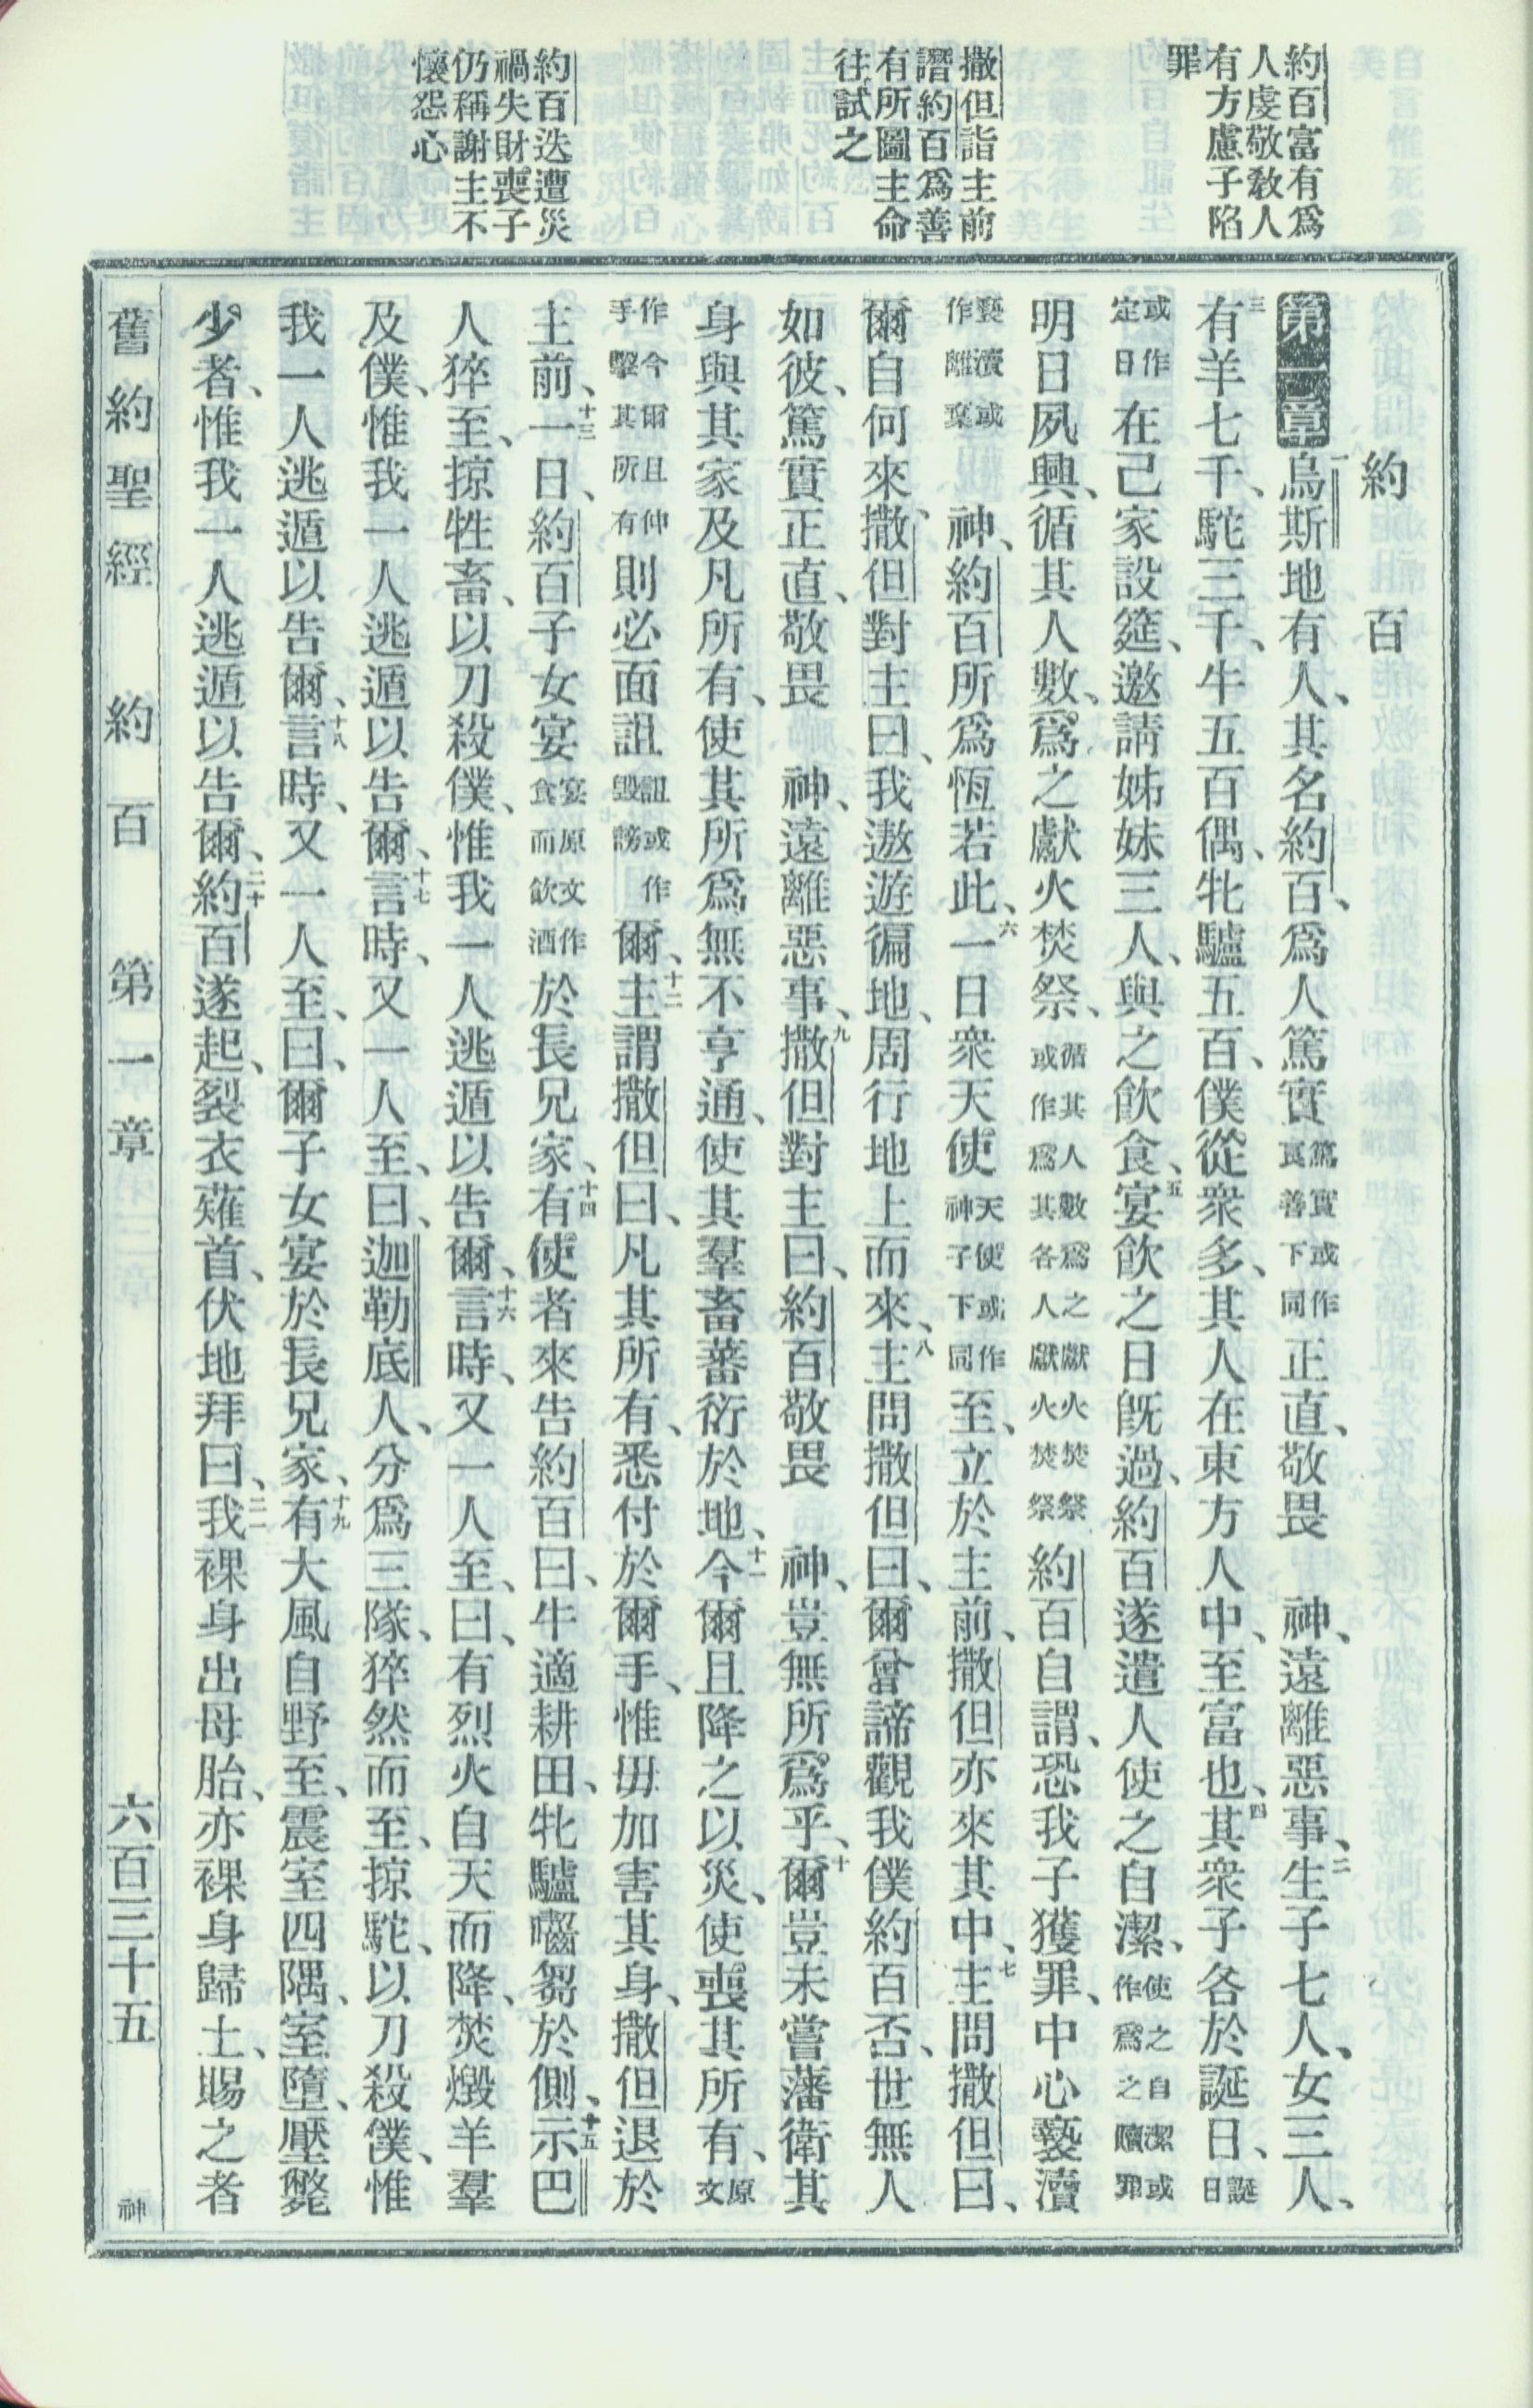 約百富有爲
人虔敬敎人
有方慮子陷
罪
撒但詣主前
譖約百爲善
有所圖主命
往試之
約百迭遭災
禍失財喪子
仍稱謝主不
懷怨心
約百
第一章 一烏斯地有人、其名約百、爲人篤實篤實或作良善下同正直、敬畏　神、遠離惡事、二生子七人、女三人、
三有羊七千、駝三千、牛五百偶、牝驢五百、僕從衆多、其人在東方人中、至富也、四其衆子各於誕日、誕日
或作定日在己家設筵、邀請姊妹三人、與之飲食、五宴飲之日旣過、約百遂遣人使之自潔、使之自潔或作爲之贖罪
明日夙興、循其人數、爲之獻火焚祭、循其人數爲之獻火焚祭或作爲其各人獻火焚祭約百自謂、恐我子獲罪、中心褻瀆
褻瀆或作離棄　神、約百所爲恆若此、六一日衆天使天使或作神子下同至、立於主前、撒但亦來其中、七主問撒但曰、
爾自何來、撒但對主曰、我遨遊徧地、周行地上而來、八主問撒但曰、爾曾諦觀我僕約百否、世無人
如彼、篤實正直、敬畏　神、遠離惡事、九撒但對主曰、約百敬畏　神、豈無所爲乎、十爾豈未嘗藩衛其
身與其家及凡所有、使其所爲無不亨通、使其羣畜蕃衍於地、十一今爾且降之以災、使喪其所有、原文
作今爾且伸手擊其所有則必面詛詛或作毀謗爾、十二主謂撒但曰、凡其所有、悉付於爾手、惟毋加害其身、撒但退於
主前、十三一日、約百子女宴宴原文作食而飲酒於長兄家、十四有使者來告約百曰、牛適耕田、牝驢齧芻於側、十五示巴
人猝至、掠牲畜、以刀殺僕、惟我一人逃遁以告爾、十六言時、又一人至、曰、有烈火自天而降、焚燬羊羣
及僕、惟我一人逃遁以告爾、十七言時、又一人至、曰、迦勒底人、分爲三隊、猝然而至、掠駝、以刀殺僕、惟
我一人逃遁以告爾、十八言時、又一人至、曰、爾子女宴於長兄家、十九有大風自野至、震室四隅、室墮、壓斃
少者、惟我一人逃遁以告爾、二十約百遂起、裂衣薙首、伏地拜曰、二一我裸身出母胎、亦裸身歸土、賜之者
舊約聖經　約百　第一章　六百三十五　神